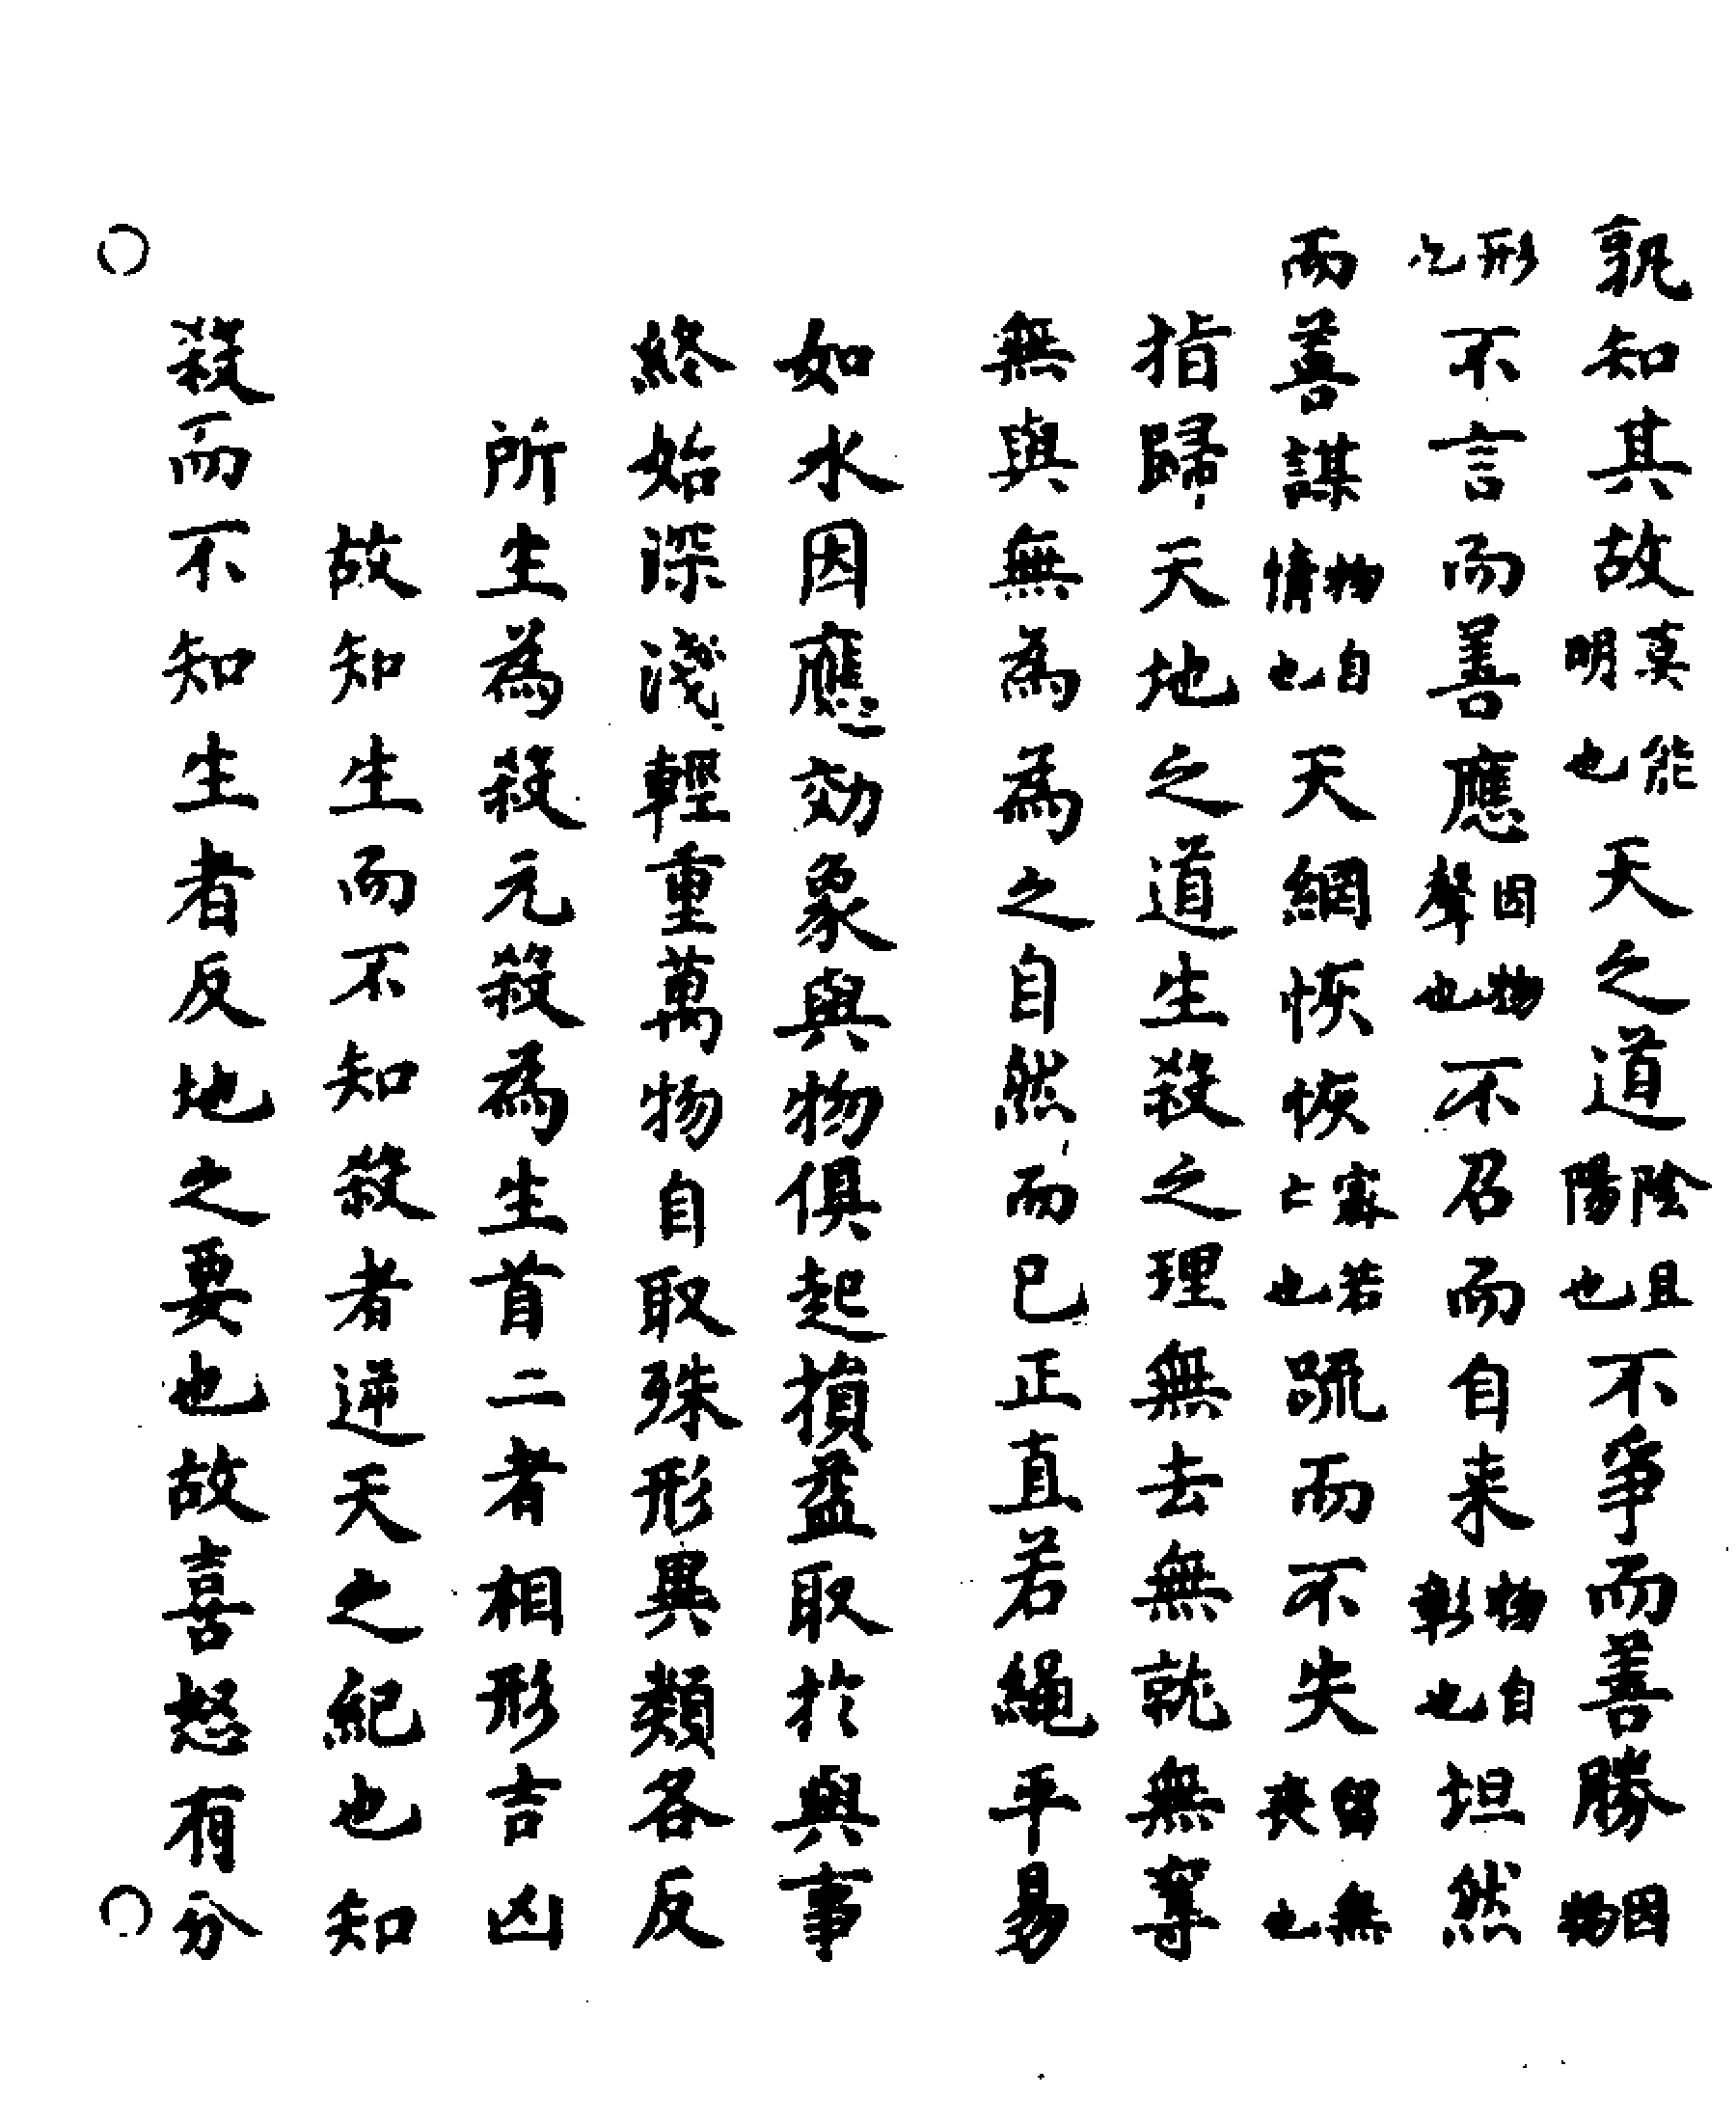 孰知其故莫能明也天之道陰且陽也不爭而善勝因物
形也不言而善應因物聲也不召而自来物自彰也坦然
而善謀物自情也天網恢恢寡若亡也踈而不失留無喪也
指歸天地之道生殺之理無去無就無奪
無與無為為之自然而已正直若繩平易
如水因應効象與物俱起損益取於與事
終始深淺輕重萬物自取殊形異類各反
所生為殺元殺為生首二者相形吉凶
故知生而不知殺者逆天之紀也知
殺而不知生者反地之要也故喜怒有分